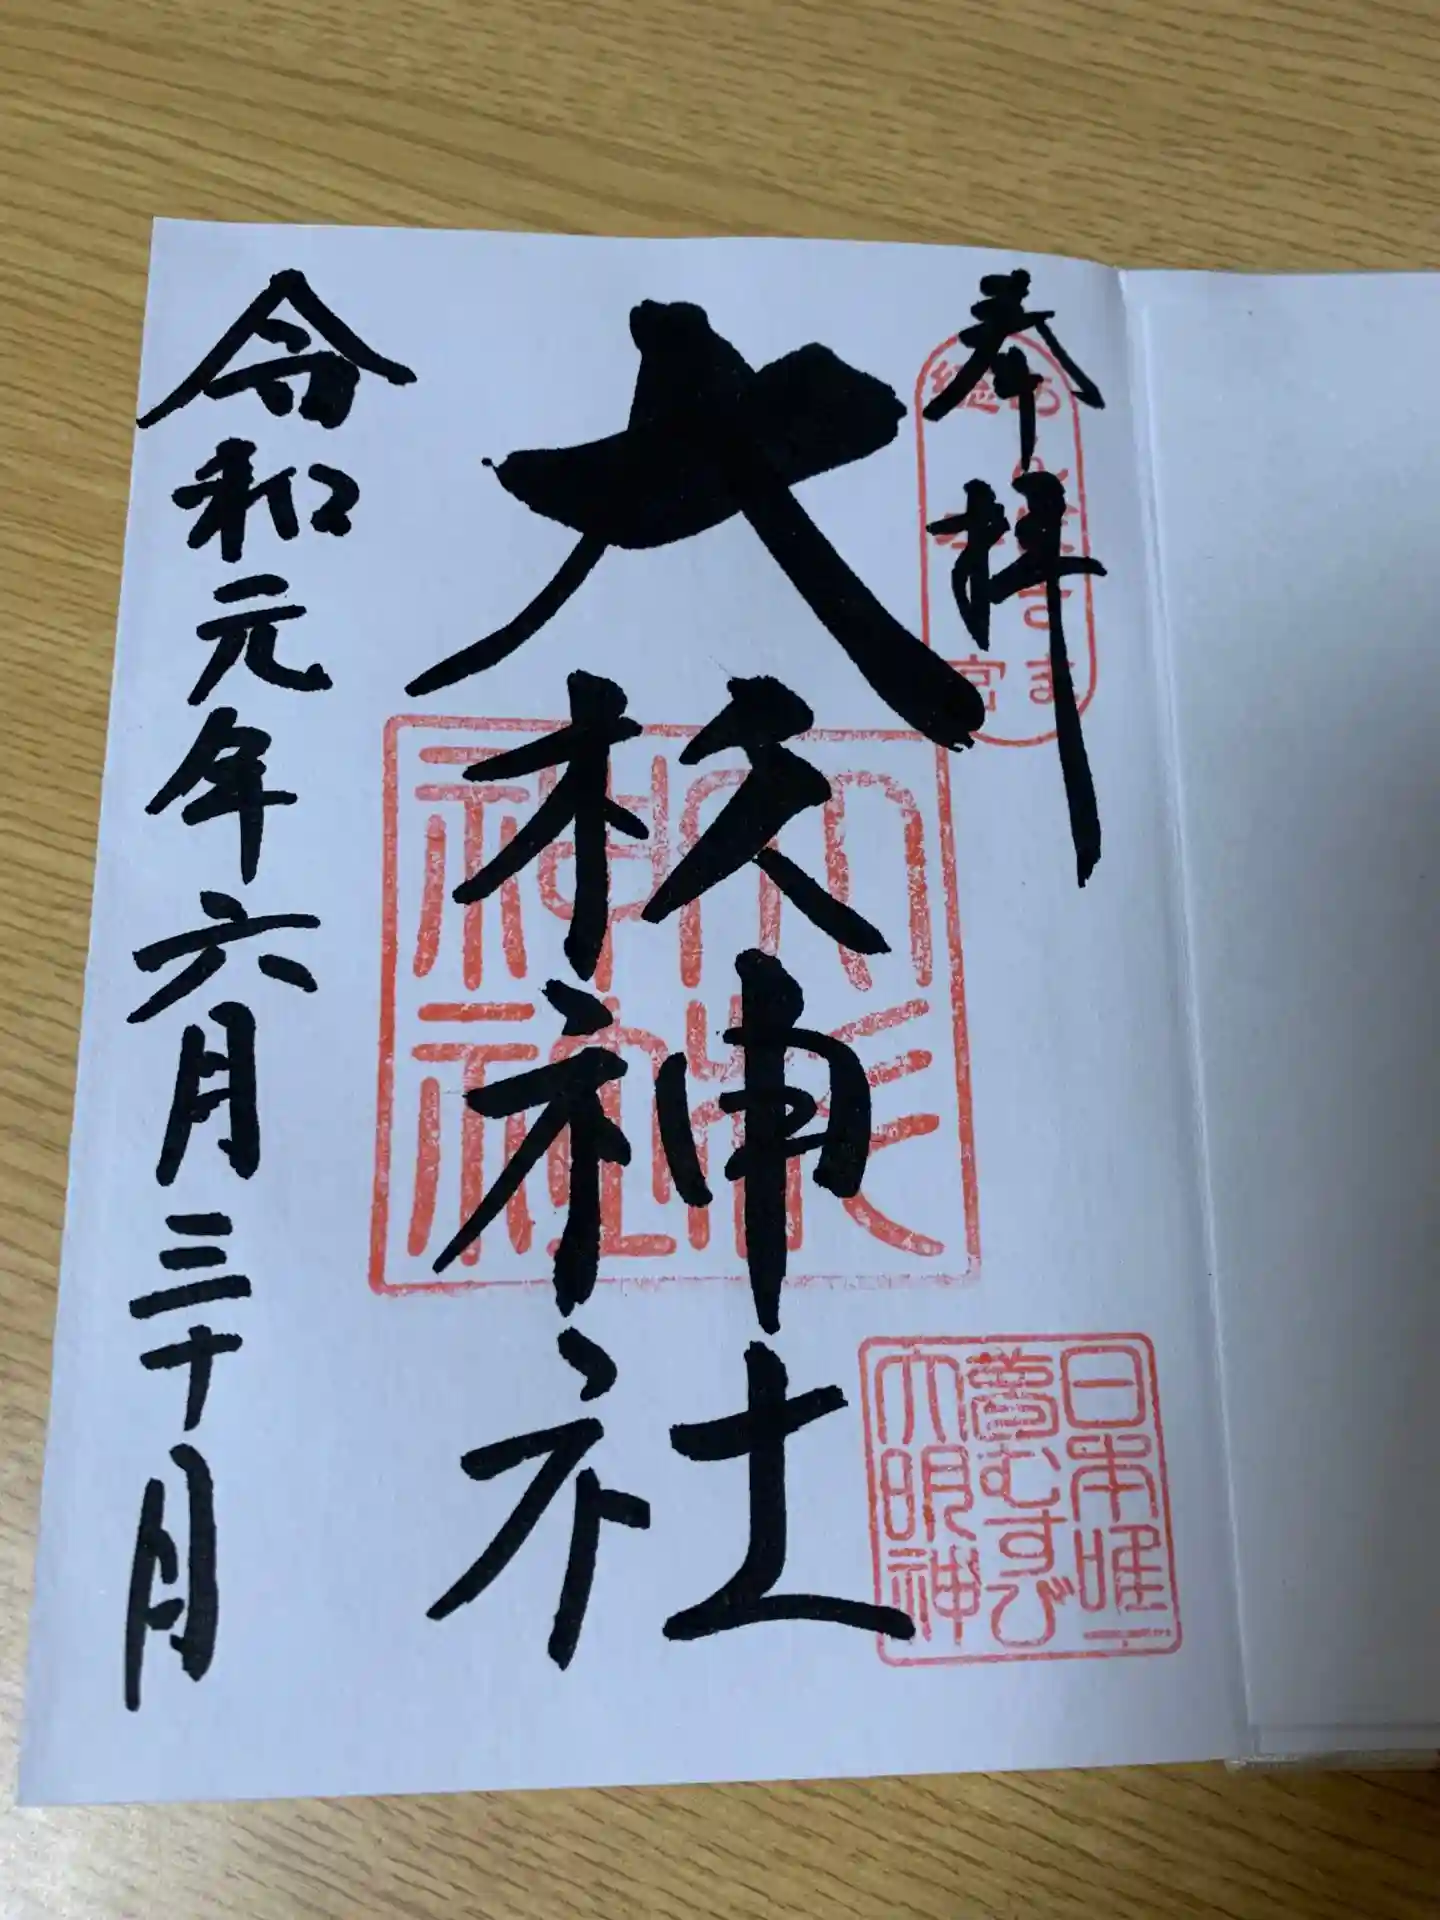 奉拝
あんばさま
総本宮
大杉神社
大杉
神社
日本唯一
夢むすび
大明神
令和元年六月三十日